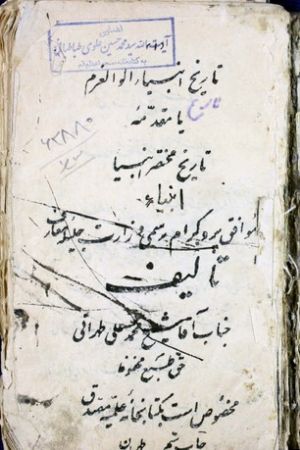 اهدایی
آیت الله سید محمد حسین علوی طباطبائی
به کتابخانه مسجد اعظم قم
تاریخ انبیاء اولوالعزم
تاریخ
یا مقدمه
۶۲۸۸۰
تاریخ مختصر انبیا
انبیاء
موافق پروگرام رسمی وزارت جلیله معارف
تألیف
جناب آقا شیخ محمد علی طهرانی
حق طبع محفوظ
مخصوص است بکتابخانه علمیه
طهران